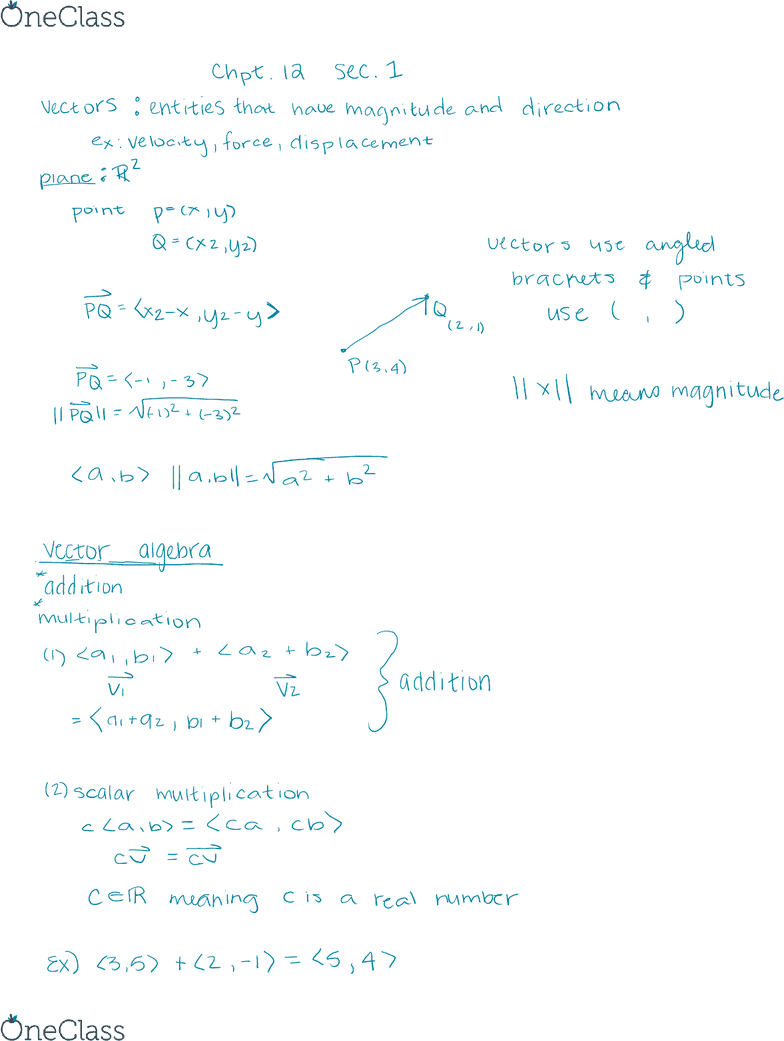 OneClass
Chpt. 12 Sec. 1
vectors : entities that have magnitude and direction
ex: velocity, force, displacement
plane : ℝ²
point P=(x,y)
Q=(x2,y2)
vectors use angled
brackets & points
use ( , )
PQ⃗ = <x2-x, y2-y>
Q
(2,1)
P(3,4)
PQ⃗ = <-1, -3>
||PQ⃗|| = √(-1)² + (-3)²
||x|| means magnitude
<a,b> ||a,b|| = √a² + b²
vector algebra
*addition
*multiplication
(1) <a1,b1> + <a2 + b2>
V1⃗ V2⃗
= <a1+a2, b1+b2>
} addition
(2) scalar multiplication
c<a,b> = <ca, cb>
cv⃗ = cv⃗
C∈ℝ meaning c is a real number
Ex) <3,5> + <2,-1> = <5,4>
OneClass